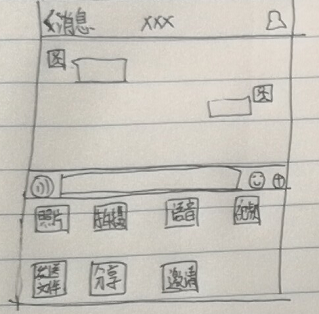 <消息 XXX
图
图
照片 拍摄 语音 视频
发送文件 分享 邀请